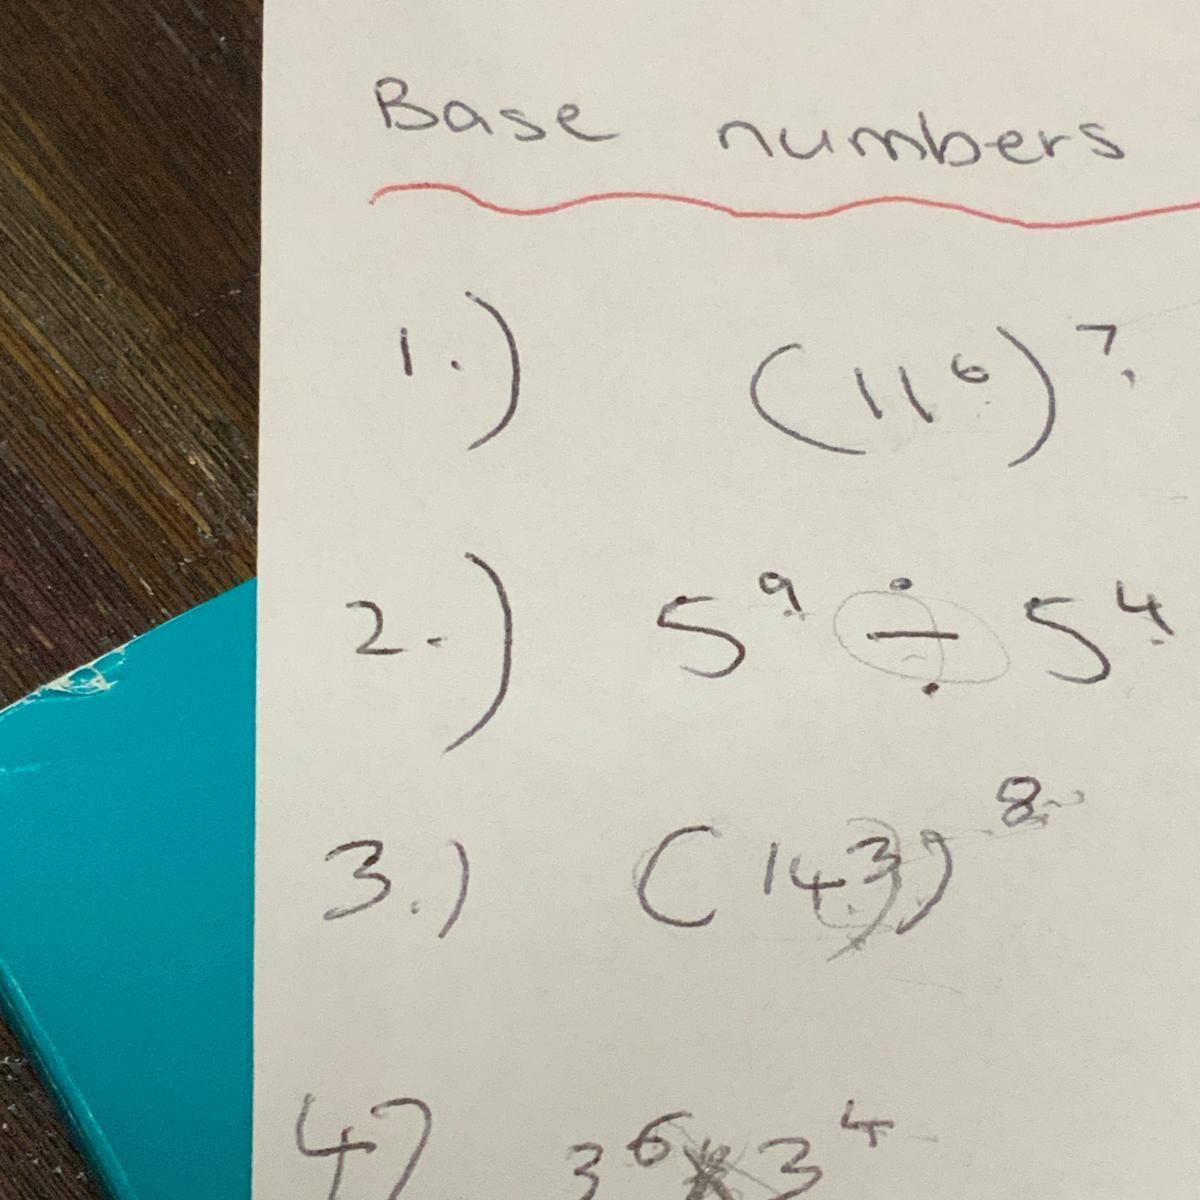 Base numbers
1.) (11⁶)⁷.
2.) 5⁹ ÷ 5⁴
3.) (14³)⁸
4) 3⁶ × 3⁴